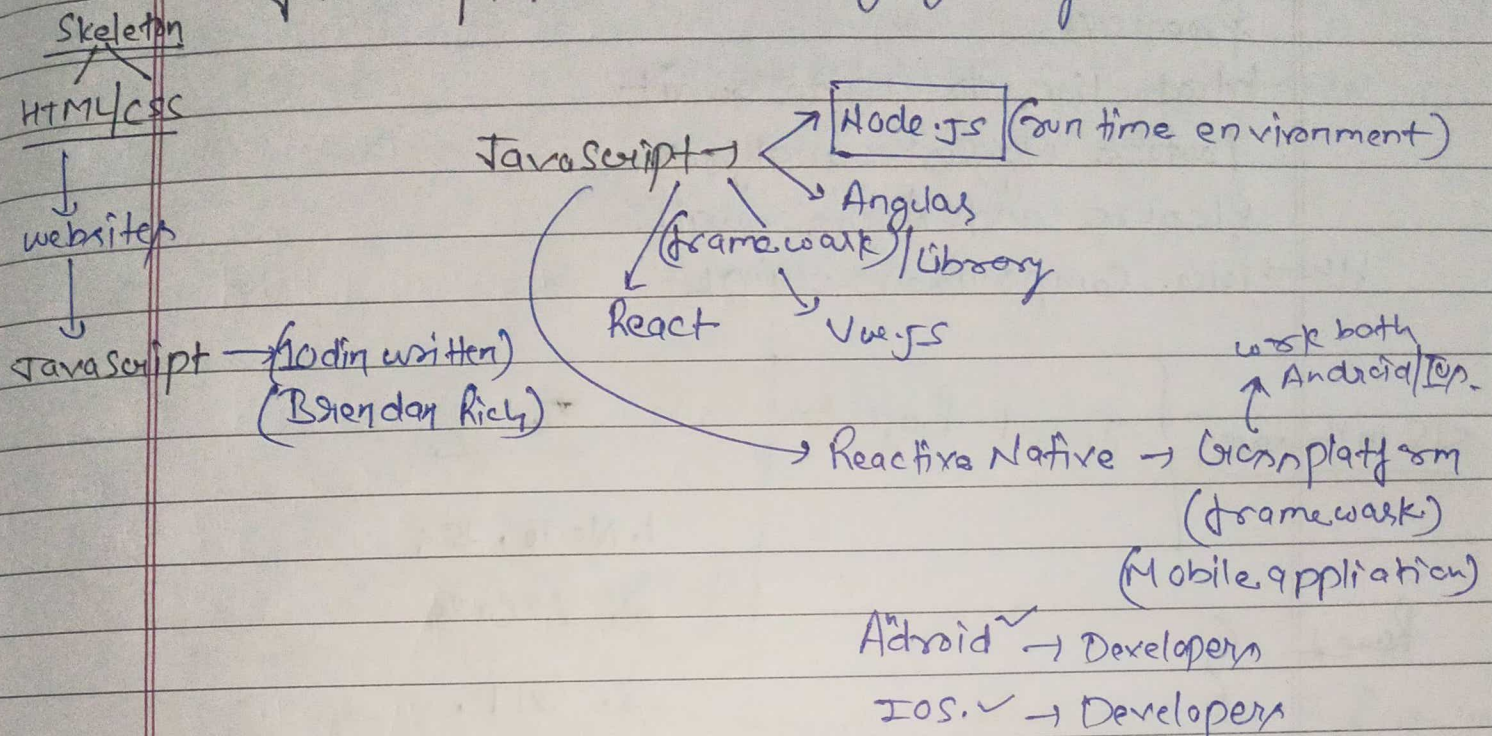 Skeleton
HTML/CSS
websites
JavaScript → (10din written)
(Brendan Rich)
JavaScript →
Node.JS (run time environment)
Angular
(framework)/Library
React
Vue.JS
work both
Android/Ios.
Reactive Native → Crossplatform
(framework)
(Mobile appliation)
Android ✓ → Developers
IOS. ✓ → Developers